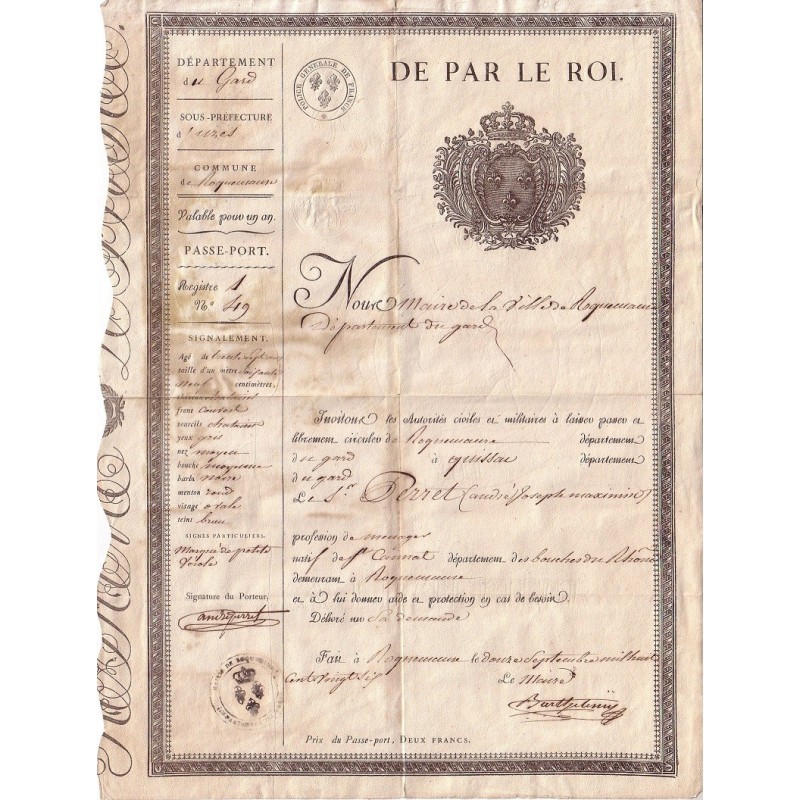 DÉPARTEMENT
du Gard
SOUS-PRÉFECTURE
d'uzes
COMMUNE
de Roquemaure
Valable pour un an.
PASSE-PORT.
Registre 1
N.° 49
SIGNALEMENT.
Agé de trente
taille d'un mètre soixante
neuf centimètres,
front couvert
sourcils chatains
yeux gris
nez moyen
bouche moyenne
barbe noire
menton rond
visage ovale
teint brun
SIGNES PARTICULIERS.
Marqué de petite
Verole
Signature du Porteur,
andréperret
POLICE GÉNÉRALE DE FRANCE
DE PAR LE ROI.
Nous Maire de la Ville de Roquemaure
Département du gard
Invitons les Autorités civiles et militaires à laisser passer et
librement circuler de Roquemaure département
du gard à quissac département
du gard
Le S.r Perret (andré Joseph maximin)
profession de menager
natif de St Cannat département des bouches du Rhône
demeurant à Roquemaure
et à lui donner aide et protection en cas de besoin.
Délivré sur Sa demande
Fait à Roquemaure le douze Septembre mil huit
cent vingt six
Le Maire
Barthelemy
Prix du Passe-port, DEUX FRANCS.